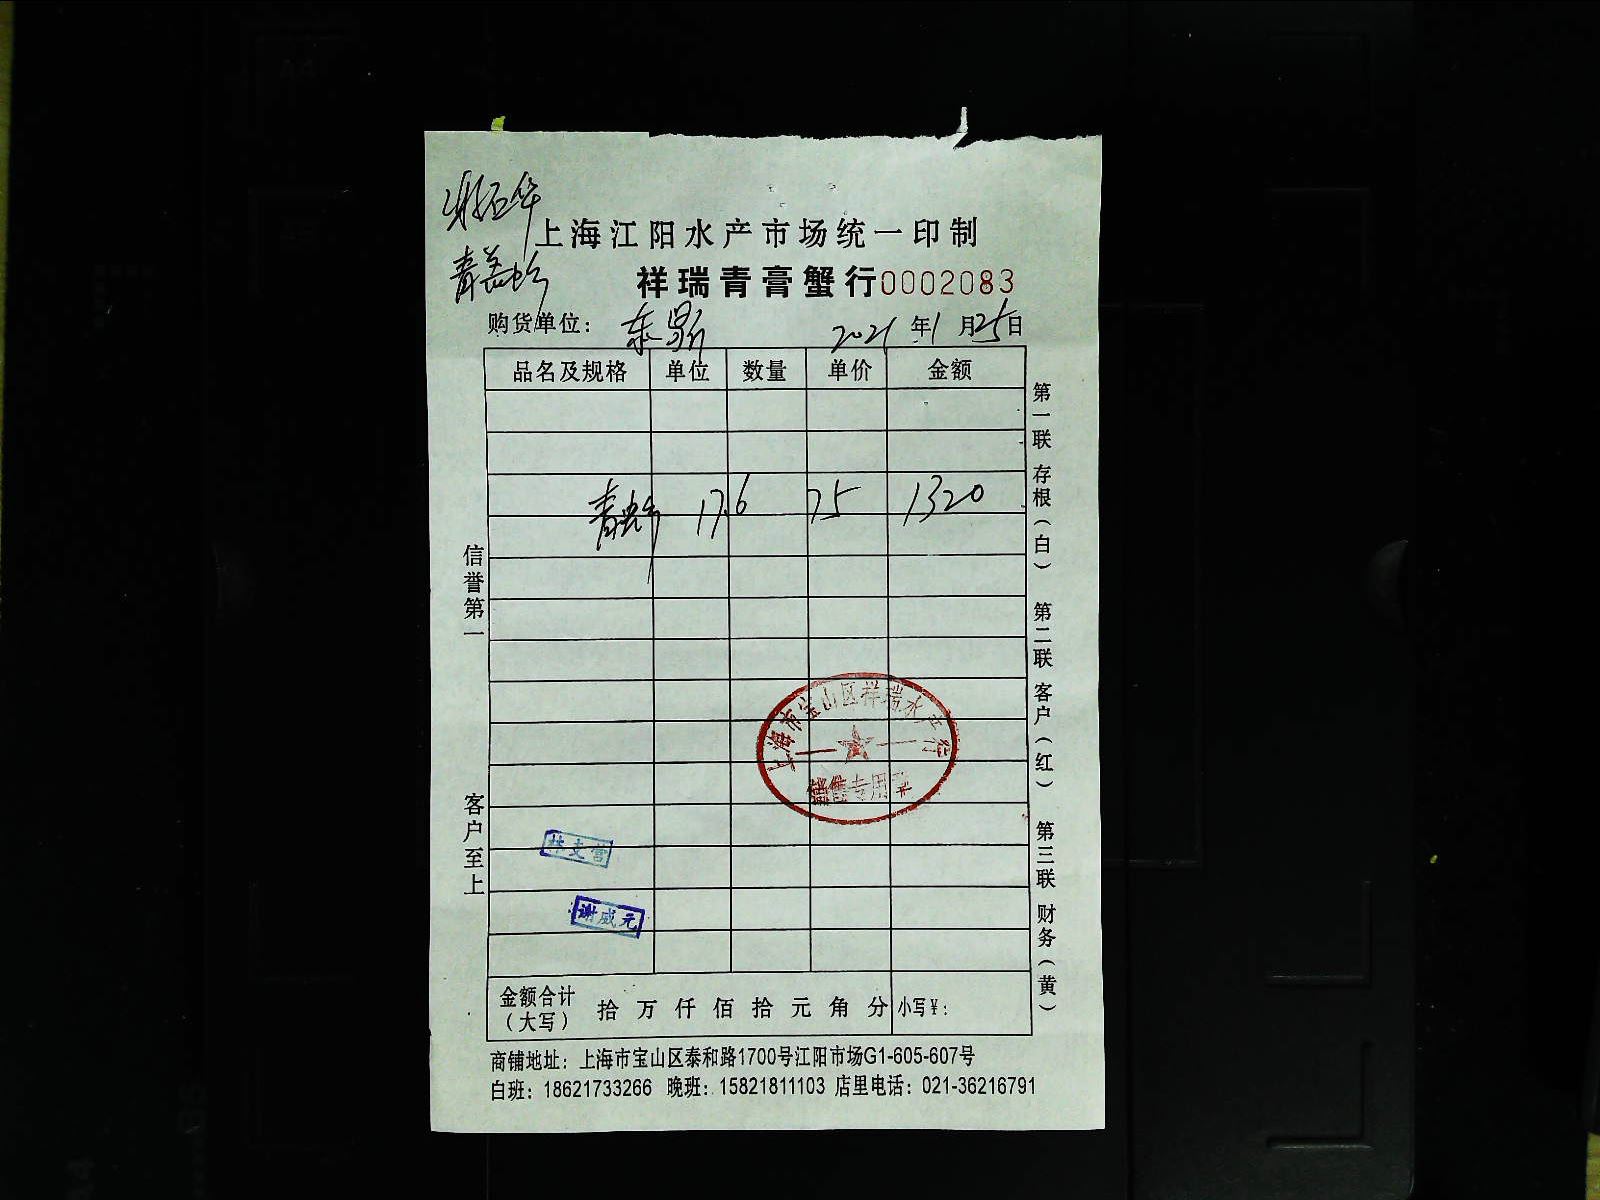 上海江阳水产市场统一印制
祥瑞青膏蟹行0002083
购货单位： 东 2021年1月25日
品名及规格 单位 数量 单价 金额
青 17.6 75 1320
信誉第一
客户至上
第一联 存根（白） 第二联 客户（红） 第三联 财务（黄）
上海市宝山区祥瑞水产行
销售专用章
林支营
谢威元
金额合计（大写） 拾 万 仟 佰 拾 元 角 分 小写¥：
商铺地址：上海市宝山区泰和路1700号江阳市场G1-605-607号
白班：18621733266 晚班：15821811103 店里电话：021-36216791